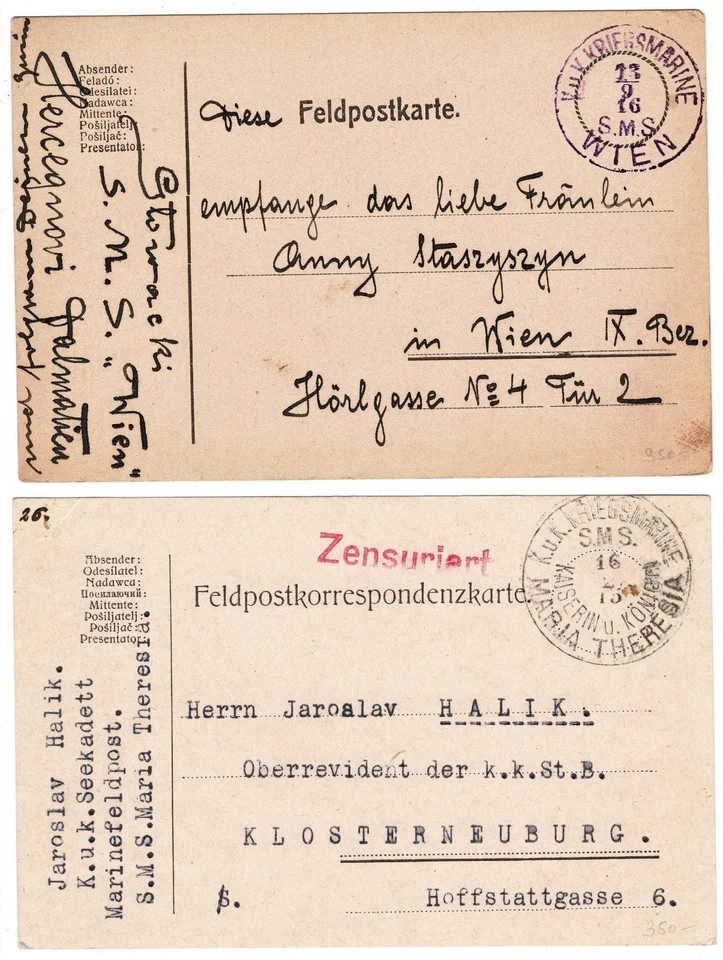 Absender:
Feladó:
Odesilatel:
Nadawca:
Mittente:
Pošiljatelj
Pošiljač:
Presentator:
Słowacki
S.M.S. „Wien“
Hercegnovi Dalmatien
Diese Feldpostkarte.
K.u.K. KRIEGSMARINE
13
9
16
S.M.S.
WIEN
empfange das liebe Fräulein
Anny Staszyszyn
in Wien IX. Bez.
Hörlgasse № 4 Tür 2
350-
26.
Absender:
Odesílatel:
Nadawca:
Посилаючий:
Mittente:
Pošiljatelj:
Pošiljač:
Presentator:
Jaroslav Halik.
K.u.k.Seekadett
Marinefeldpost.
S.M.S.Maria Theresia.
Zensuriert
Feldpostkorrespondenzkarte
K.u.K. KRIEGSMARINE
S.M.S.
16
15
KAISERIN u. KÖNIGIN
MARIA THERESIA
Herrn Jaroslav HALIK.
Oberrevident der k.k.St.B.
KLOSTERNEUBURG.
Hoffstattgasse 6.
350-